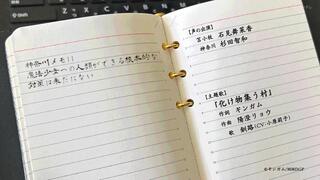 神奈川メモ11
魔法少女への人類ができる根本的な
対策は未だにない
【声の出演】
苫小牧 石見舞菜香
神奈川 杉田智和
【主題歌】
「化け物集う村」
作詞 ギンガム
作曲 陽澄リョウ
歌 釧路(CV:小原莉子)
©ギンガム/MMDGP